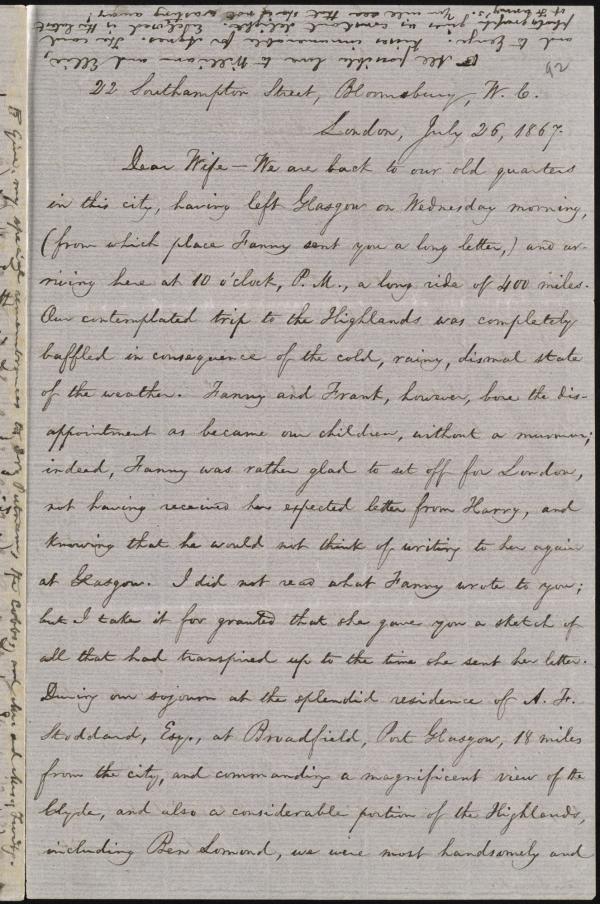 All possible love to William and Ellie,
and to Lenzie. Kisses innumerable for Agnes. Her card
photograph gives us constant delight.
of Fanny's. You will see that she is not wasting away!
92
22 Southampton Street, Bloomsbury, W. C.
London, July 26, 1867.
Dear Wife — We are back to our old quarters
in this city, having left Glasgow on Wednesday morning,
(from which place Fanny sent you a long letter,) and ar-
riving here at 10 o'clock, P. M., a long ride of 400 miles.
Our contemplated trip to the Highlands was completely
baffled in consequence of the cold, rainy, dismal state
of the weather. Fanny and Frank, however, bore the dis-
appointment as became our children, without a murmur;
indeed, Fanny was rather glad to set off for London,
not having received her expected letter from Harry, and
knowing that he would not think of writing to her again
at Glasgow. I did not read what Fanny wrote to you;
but I take it for granted that she gave you a sketch of
all that had transpired up to the time she sent her letter.
During our sojourn at the splendid residence of A. F.
Stoddard, Esq., at Broadfield, Port Glasgow, 18 miles
from the city, and commanding a magnificent view of the
Clyde, and also a considerable portion of the Highlands,
including Ben Lomond, we were most handsomely and
Give my special remembrances to Dr. Putnam, the